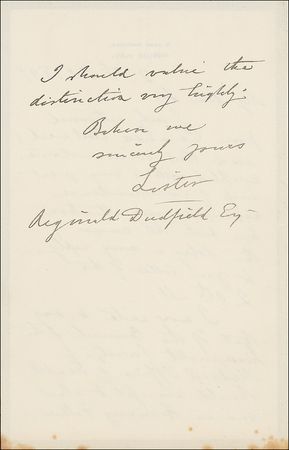 I should value the
distinction very highly.
Believe me
sincerely yours
Lister
Reginald Dudfield Esq